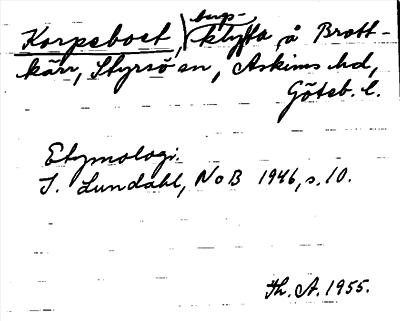 Korpebost, bergsklyfta å Brott-
kärr, Styrsö sn, Askims hd,
Göteb. l.
Etymologi.
I. Lundahl, NoB 1946, s. 10.
Th. A. 1955.